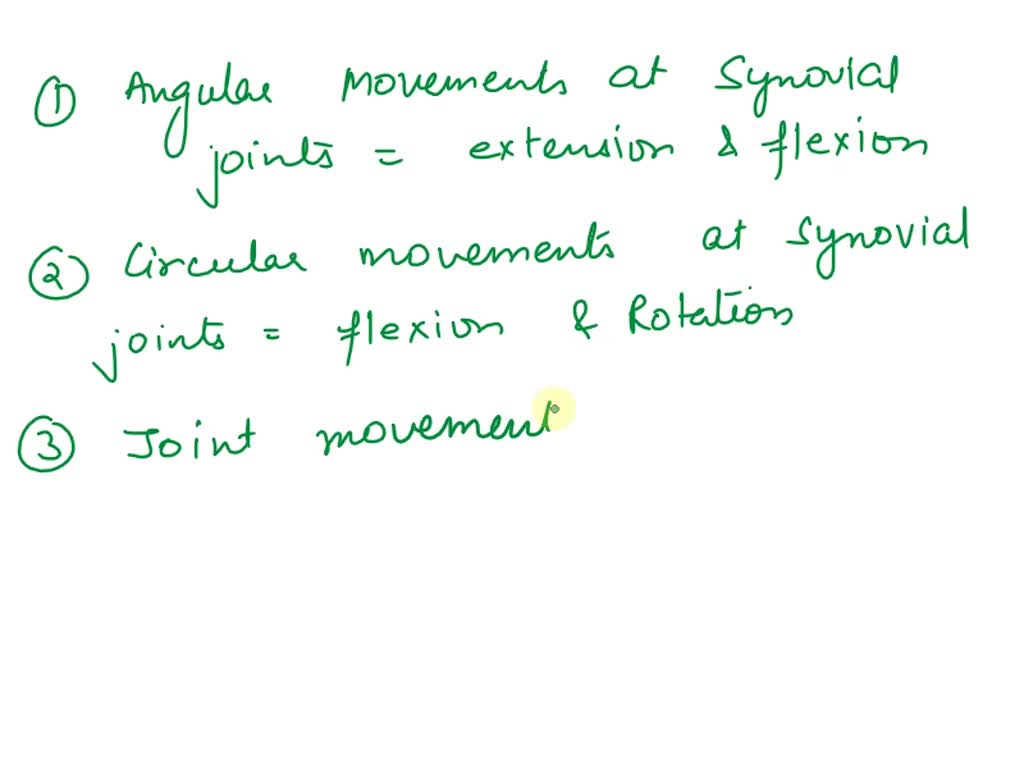 ① Angular Movements at Synovial
joints = extension & flexion
② Circular movements at synovial
joints = flexion & Rotation
③ Joint movement